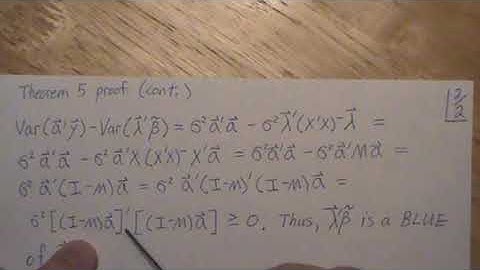 Theorem 5 proof (cont.)
2/2
Var(a⃗'y⃗)-Var(λ⃗'β̃) = σ² a⃗'a⃗ - σ² λ⃗'(X'X)⁻ λ⃗ =
= σ² a⃗'a⃗ - σ² a⃗'X(X'X)⁻X'a⃗ = σ²a⃗'a⃗ - σ²a⃗'Ma⃗ =
= σ² a⃗'(I-M)a⃗ = σ² a⃗'(I-M)'(I-M)a⃗ =
σ² [(I-M)a⃗]' [(I-M)a⃗] ≥ 0. Thus, λ⃗'β̃ is a BLUE
of